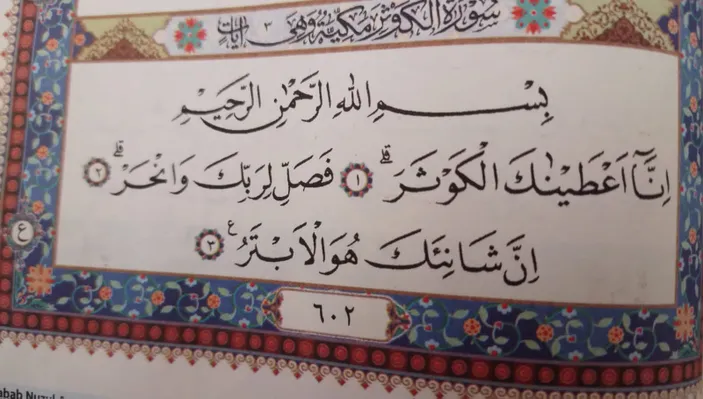 سورة الكوثر مكية وهي ٣ آيات
بِسْمِ اللهِ الرَّحْمٰنِ الرَّحِيْمِ
اِنَّآ اَعْطَيْنٰكَ الْكَوْثَرَۗ ١ فَصَلِّ لِرَبِّكَ وَانْحَرْۗ ٢
اِنَّ شَانِئَكَ هُوَ الْاَبْتَرُ ࣖ ٣
ع
٦٠٢
abab Nuzul